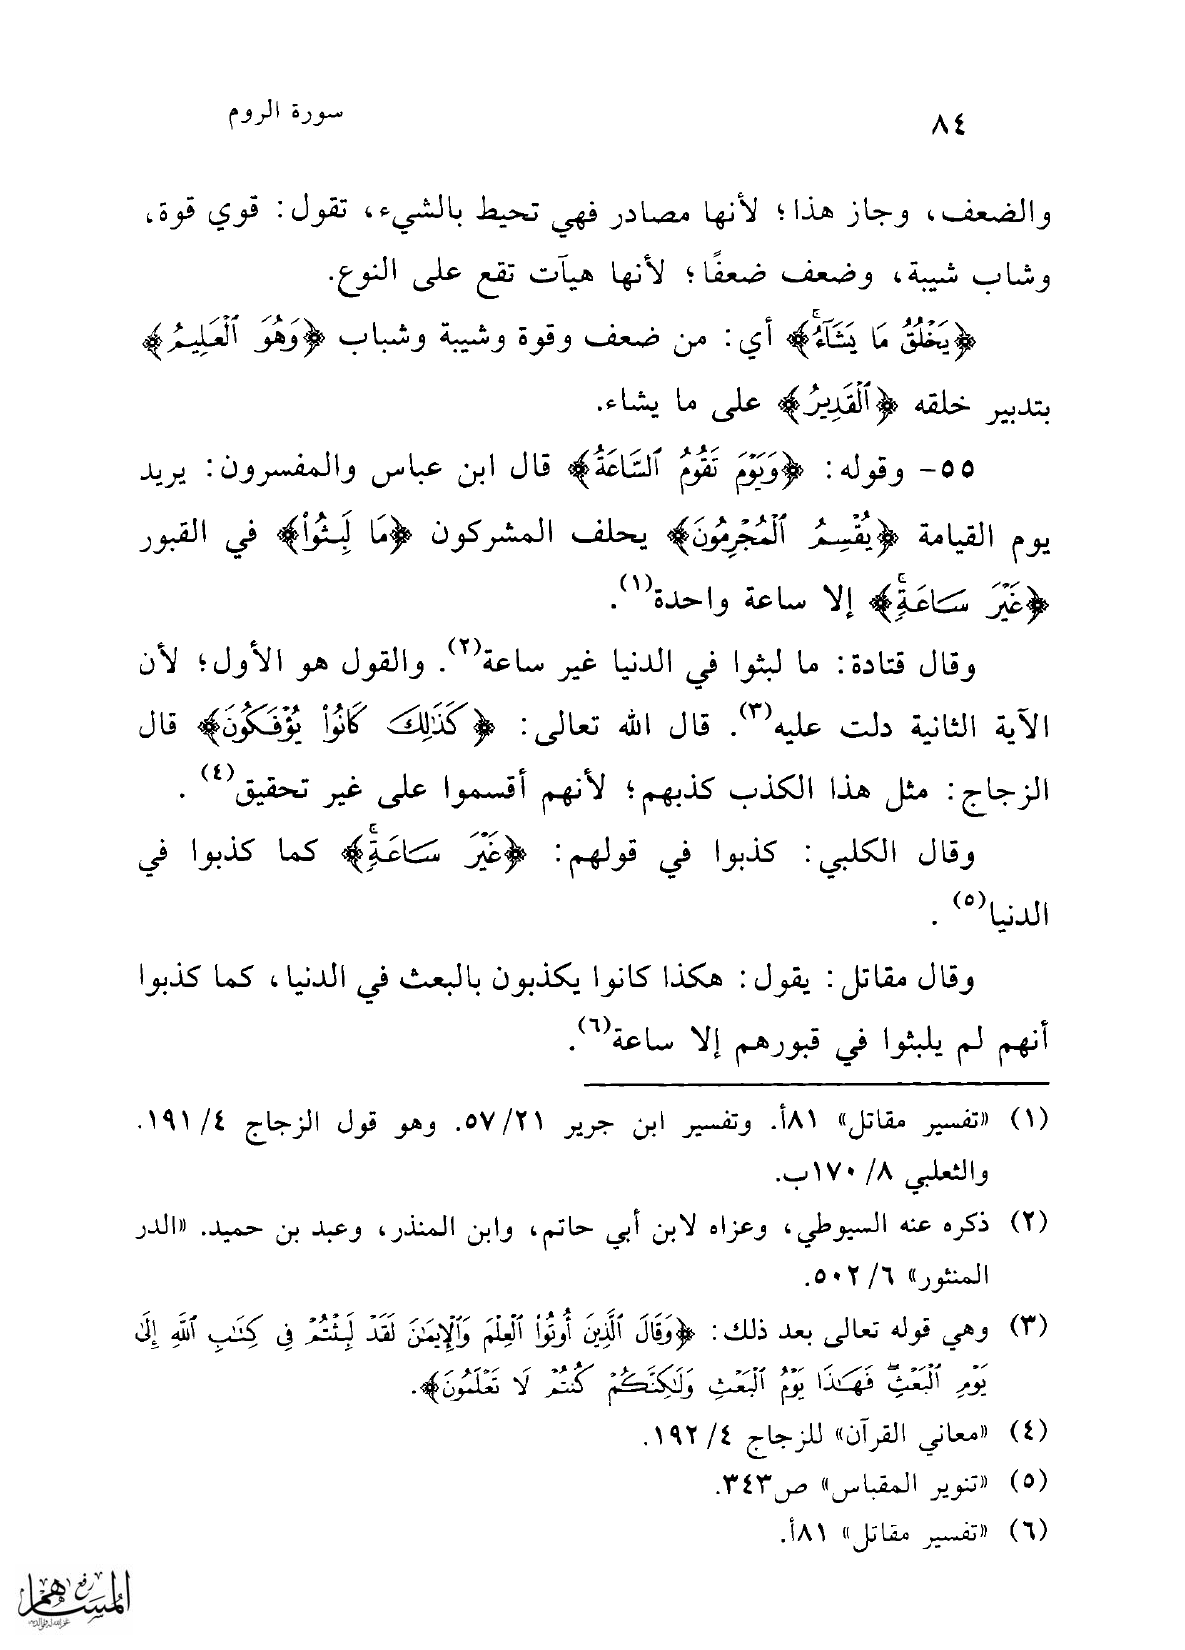 ٨٤ سورة الروم
والضعف، وجاز هذا؛ لأنها مصادر فهي تحيط بالشيء، تقول: قوي قوة،
وشاب شيبة، وضعف ضعفًا؛ لأنها هيآت تقع على النوع.
﴿يَخْلُقُ مَا يَشَآءُۚ﴾ أي: من ضعف وقوة وشيبة وشباب ﴿وَهُوَ ٱلْعَلِيمُ﴾
بتدبير خلقه ﴿ٱلْقَدِيرُ﴾ على ما يشاء.
٥٥- وقوله: ﴿وَيَوْمَ تَقُومُ ٱلسَّاعَةُ﴾ قال ابن عباس والمفسرون: يريد
يوم القيامة ﴿يُقْسِمُ ٱلْمُجْرِمُونَ﴾ يحلف المشركون ﴿مَا لَبِثُوا۟﴾ في القبور
﴿غَيْرَ سَاعَةٍۚ﴾ إلا ساعة واحدة(١).
وقال قتادة: ما لبثوا في الدنيا غير ساعة(٢). والقول هو الأول؛ لأن
الآية الثانية دلت عليه(٣). قال الله تعالى: ﴿كَذَٰلِكَ كَانُوا۟ يُؤْفَكُونَ﴾ قال
الزجاج: مثل هذا الكذب كذبهم؛ لأنهم أقسموا على غير تحقيق(٤) .
وقال الكلبي: كذبوا في قولهم: ﴿غَيْرَ سَاعَةٍۚ﴾ كما كذبوا في
الدنيا(٥) .
وقال مقاتل: يقول: هكذا كانوا يكذبون بالبعث في الدنيا، كما كذبوا
أنهم لم يلبثوا في قبورهم إلا ساعة(٦).
(١) «تفسير مقاتل» ٨١أ. وتفسير ابن جرير ٢١/ ٥٧. وهو قول الزجاج ٤/ ١٩١.
والثعلبي ٨/ ١٧٠ب.
(٢) ذكره عنه السيوطي، وعزاه لابن أبي حاتم، وابن المنذر، وعبد بن حميد. «الدر
المنثور» ٦/ ٥٠٢.
(٣) وهي قوله تعالى بعد ذلك: ﴿وَقَالَ ٱلَّذِينَ أُوتُوا۟ ٱلْعِلْمَ وَٱلْإِيمَٰنَ لَقَدْ لَبِثْتُمْ فِى كِتَٰبِ ٱللَّهِ إِلَىٰ
يَوْمِ ٱلْبَعْثِۖ فَهَٰذَا يَوْمُ ٱلْبَعْثِ وَلَٰكِنَّكُمْ كُنتُمْ لَا تَعْلَمُونَ﴾.
(٤) «معاني القرآن» للزجاج ٤/ ١٩٢.
(٥) «تنوير المقباس» ص٣٤٣.
(٦) «تفسير مقاتل» ٨١أ.